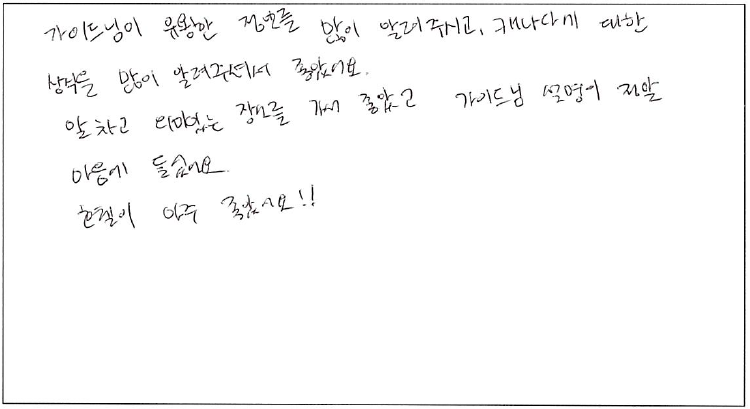 가이드님이 유용한 정보를 많이 알려주시고, 캐나다에 대한
상식을 많이 알려주셔서 좋았어요.
알차고 재미있는 장소를 가서 좋았고 가이드님 설명이 정말
마음에 들었어요.
호텔이 아주 좋았어요!!